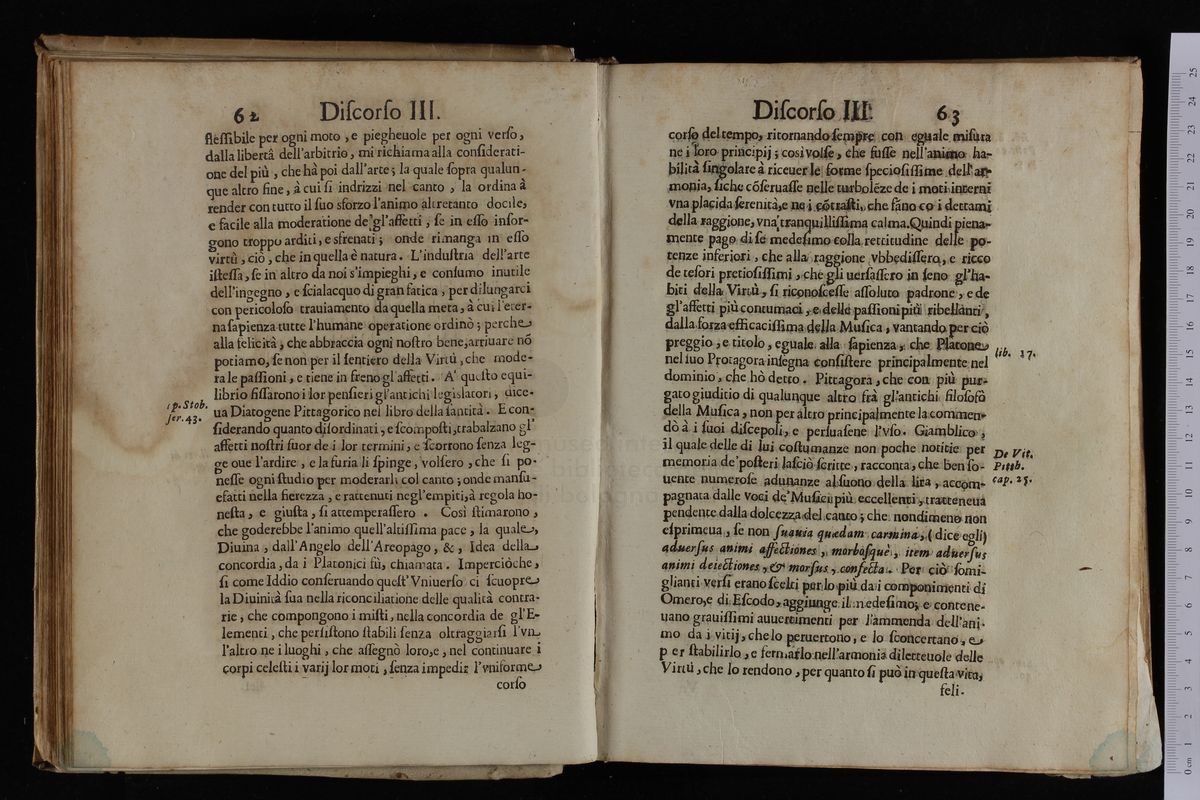 62 Diſcorſo III.
fleſſibile per ogni moto, e piegheuole per ogni verſo,
dalla libertà dell'arbitrio, mi richiama alla conſiderati-
one del più, che hà poi dall'arte; la quale ſopra qualun-
que altro fine, à cui ſi indrizzi nel canto, la ordina à
render con tutto il ſuo sforzo l'animo altretanto docile,
e facile alla moderatione de' gl'affetti, ſe in eſſo inſor-
gono troppo arditi, e sfrenati; onde rimanga in eſſo
virtù, ciò, che in quella è natura. L'induſtria dell'arte
iſteſſa, ſe in altro da noi s'impieghi, e conſumo inutile
dell'ingegno, e ſcialacquo di gran fatica, per dilungarci
con pericoloſo trauiamento da quella meta, à cui l'eter-
na ſapienza tutte l'humane operatione ordinò; perche
alla felicità, che abbraccia ogni noſtro bene, arriuare nō
potiamo, ſe non per il ſentiero della Virtù, che mode-
ra le paſſioni, e tiene in freno gl'affetti. A' queſto equi-
librio fiſſarono i lor penſieri gl'antichi legislatori, dice-
ua Diatogene Pittagorico nel libro della ſantità. E con-
ſiderando quanto diſordinati, e ſcompoſti, trabalzano gl'
affetti noſtri fuor de i lor termini, e ſcorrono ſenza leg-
ge oue l'ardire, e la furia li ſpinge, volſero, che ſi po-
neſſe ogni ſtudio per moderarli col canto; onde manſu-
efatti nella fierezza, e rattenuti negl'empiti, à regola ho-
neſta, e giuſta, ſi attemperaſſero. Così ſtimarono,
che goderebbe l'animo quell'altiſſima pace, la quale,
Diuina, dall'Angelo dell'Areopago, &, Idea della
concordia, da i Platonici fù, chiamata. Imperciòche,
ſi come Iddio conſeruando queſt'Vniuerſo ci ſcuopre
la Diuinità ſua nella riconciliatione delle qualità contra-
rie, che compongono i miſti, nella concordia de gl'E-
lementi, che perſiſtono ſtabili ſenza oltraggiarſi l'vn
l'altro ne i luoghi, che aſſegnò loro, e, nel continuare i
corpi celeſti i varij lor moti, ſenza impedir l'vniforme
corſo
ap. Stob.
ſer. 43.
Diſcorſo III. 63
corſo del tempo, ritornando ſempre con eguale miſura
ne i loro principij; così volſe, che fuſſe nell'animo ha-
bilità ſingolare à riceuer le forme ſpecioſiſſime dell'ar-
monia, ſiche cōſeruaſſe nelle turbolēze de i moti interni
vna placida ſerenità, e ne i cōtraſti, che fāno cō i dettami
della raggione, vna tranquilliſſima calma. Quindi piena-
mente pago di ſe medeſimo colla rettitudine delle po-
tenze inferiori, che alla raggione vbbediſſero, e ricco
de teſori pretioſiſſimi, che gli uerſaſſero in ſeno gl'ha-
biti della Virtù, ſi riconoſceſſe aſſoluto padrone, e de
gl'affetti più contumaci, e delle paſſioni più ribellanti,
dalla forza efficaciſſima della Muſica, vantando per ciò
preggio, e titolo, eguale alla ſapienza, che Platone
nel ſuo Protagora inſegna conſiſtere principalmente nel
dominio, che hò detto. Pittagora, che con più pur-
gato giuditio di qualunque altro frà gl'antichi filoſofò
della Muſica, non per altro principalmente la commen-
dò à i ſuoi diſcepoli, e perſuaſene l'vſo. Giamblico,
il quale delle di lui coſtumanze non poche notitie per
memoria de' poſteri laſciò ſcritte, racconta, che ben ſo-
uente numeroſe adunanze al ſuono della lira, accom-
pagnata dalle voci de' Muſici più eccellenti, tratteneua
pendente dalla dolcezza del canto; che nondimeno non
eſprimeua, ſe non ſuauia quædam carmina, (dice egli)
aduerſus animi affectiones, morboſquè, item aduerſus
animi deiectiones, & morſus, confecta. Per ciò ſomi-
glianti verſi erano ſcelti per lo più da i componimenti di
Omero, e di Eſcodo, aggiunge il medeſimo; e contene-
uano grauiſſimi auuertimenti per l'ammenda dell'ani-
mo da i vitij, che lo peruertono, e lo ſconcertano, e
p er ſtabilirlo, e fermarlo nell'armonia diletteuole delle
Virtù, che lo rendono, per quanto ſi può in queſta vita,
feli-
lib. 17.
De Vit.
Pitth.
cap. 25.